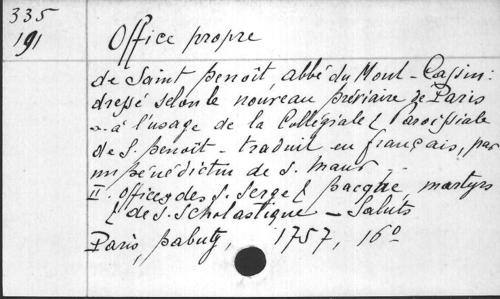 335
191
Office propre
de Saint Benoît abbé du Mont-Cassin:
dressé selon le nouveau bréviaire de Paris
à l'usage de la Collégiale & paroissiale
de S. Benoît - traduit en français, par
un bénédictin de S. Maur -
II. Offices des S. Serge & Bacque, martyrs
& de S. Scholastique - Saluts
Paris, Babuty, 1757, 16°